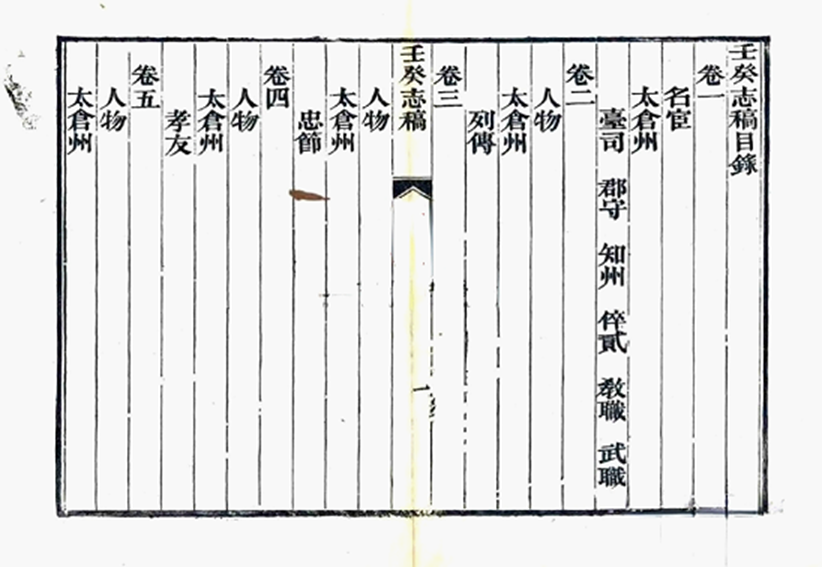 壬癸志稿目錄
卷一
名宦
太倉州
臺司 郡守 知州 倅貳 敎職 武職
卷二
人物
太倉州
列傳
卷三
壬癸志稿
一
人物
太倉州
忠節
卷四
人物
太倉州
孝友
卷五
人物
太倉州